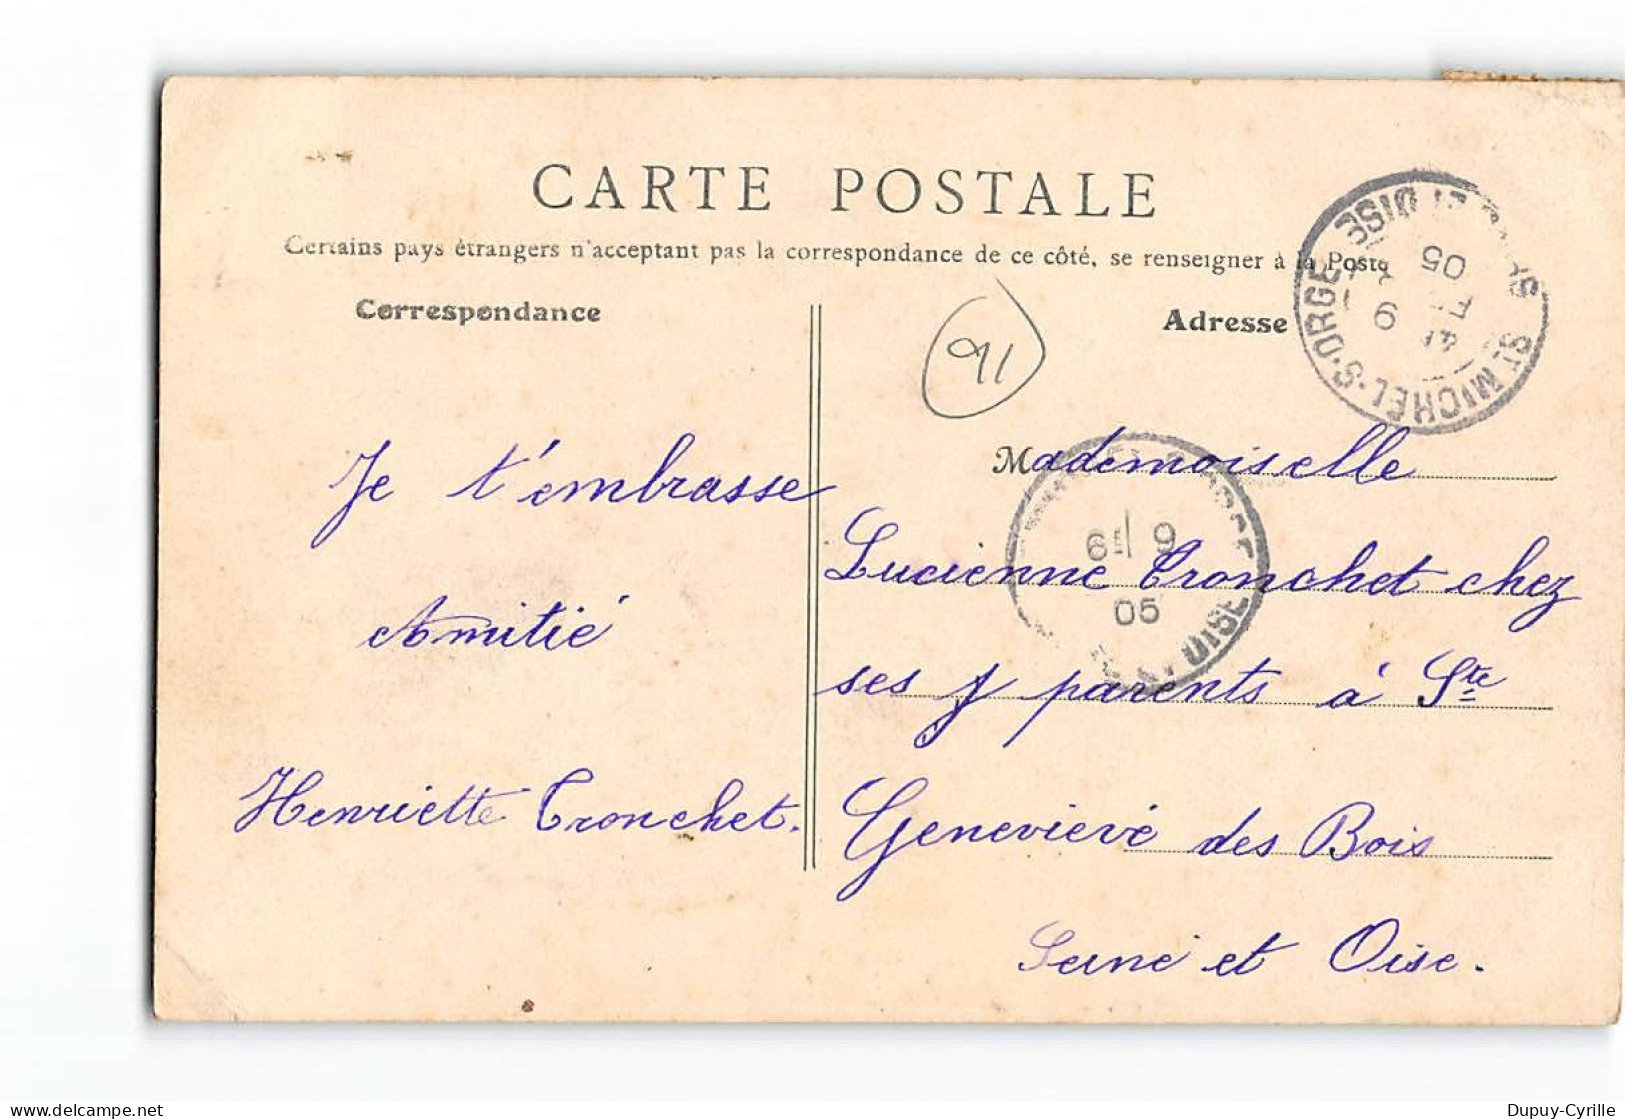 CARTE POSTALE
Certains pays étrangers n'acceptant pas la correspondance de ce côté, se renseigner à la Poste
Correspondance
Adresse
91
Je t'embrasse
Amitié
Henriette Tronchet.
Mademoiselle
Lucienne Tronchet chez
ses parents à Ste
Geneviève des Bois
Seine et Oise.
ST MICHEL-S-ORGE
9
05
9
05
OISE
Dupuy-Cyrille